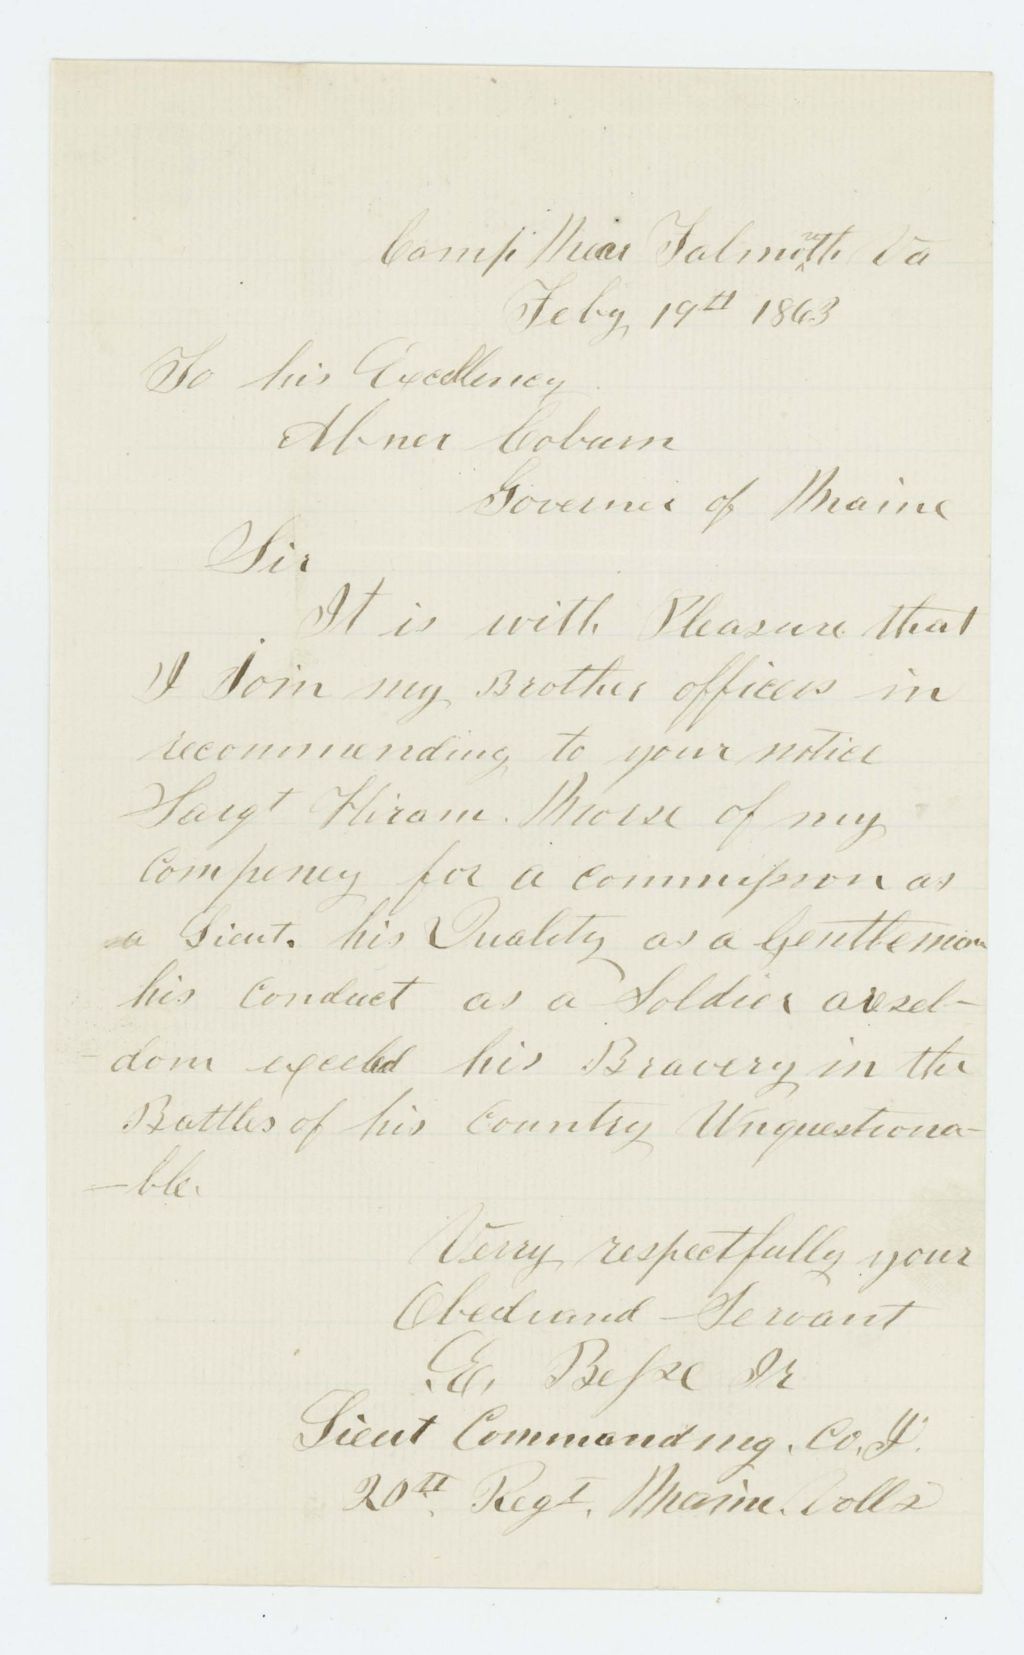 Camp Near Falmouth Va
Feby 19th 1863
To his Excellency
Abner Coburn
Governer of Maine
Sir
It is with Pleasure that
I Join my Brother officers in
recommending to your notice
Sargt Hiram Morse of my
Compeney for a commission as
a Lieut. his Quality as a Gentleman
his Conduct as a Soldier are sel-
-dom exceled his Bravery in the
Battles of his Country Unquestiona-
-ble.
Verry respectfully your
Obediand Servant
E. Besse Jr
Lieut Commanding. Co. I.
20th Regt. Maine Volls